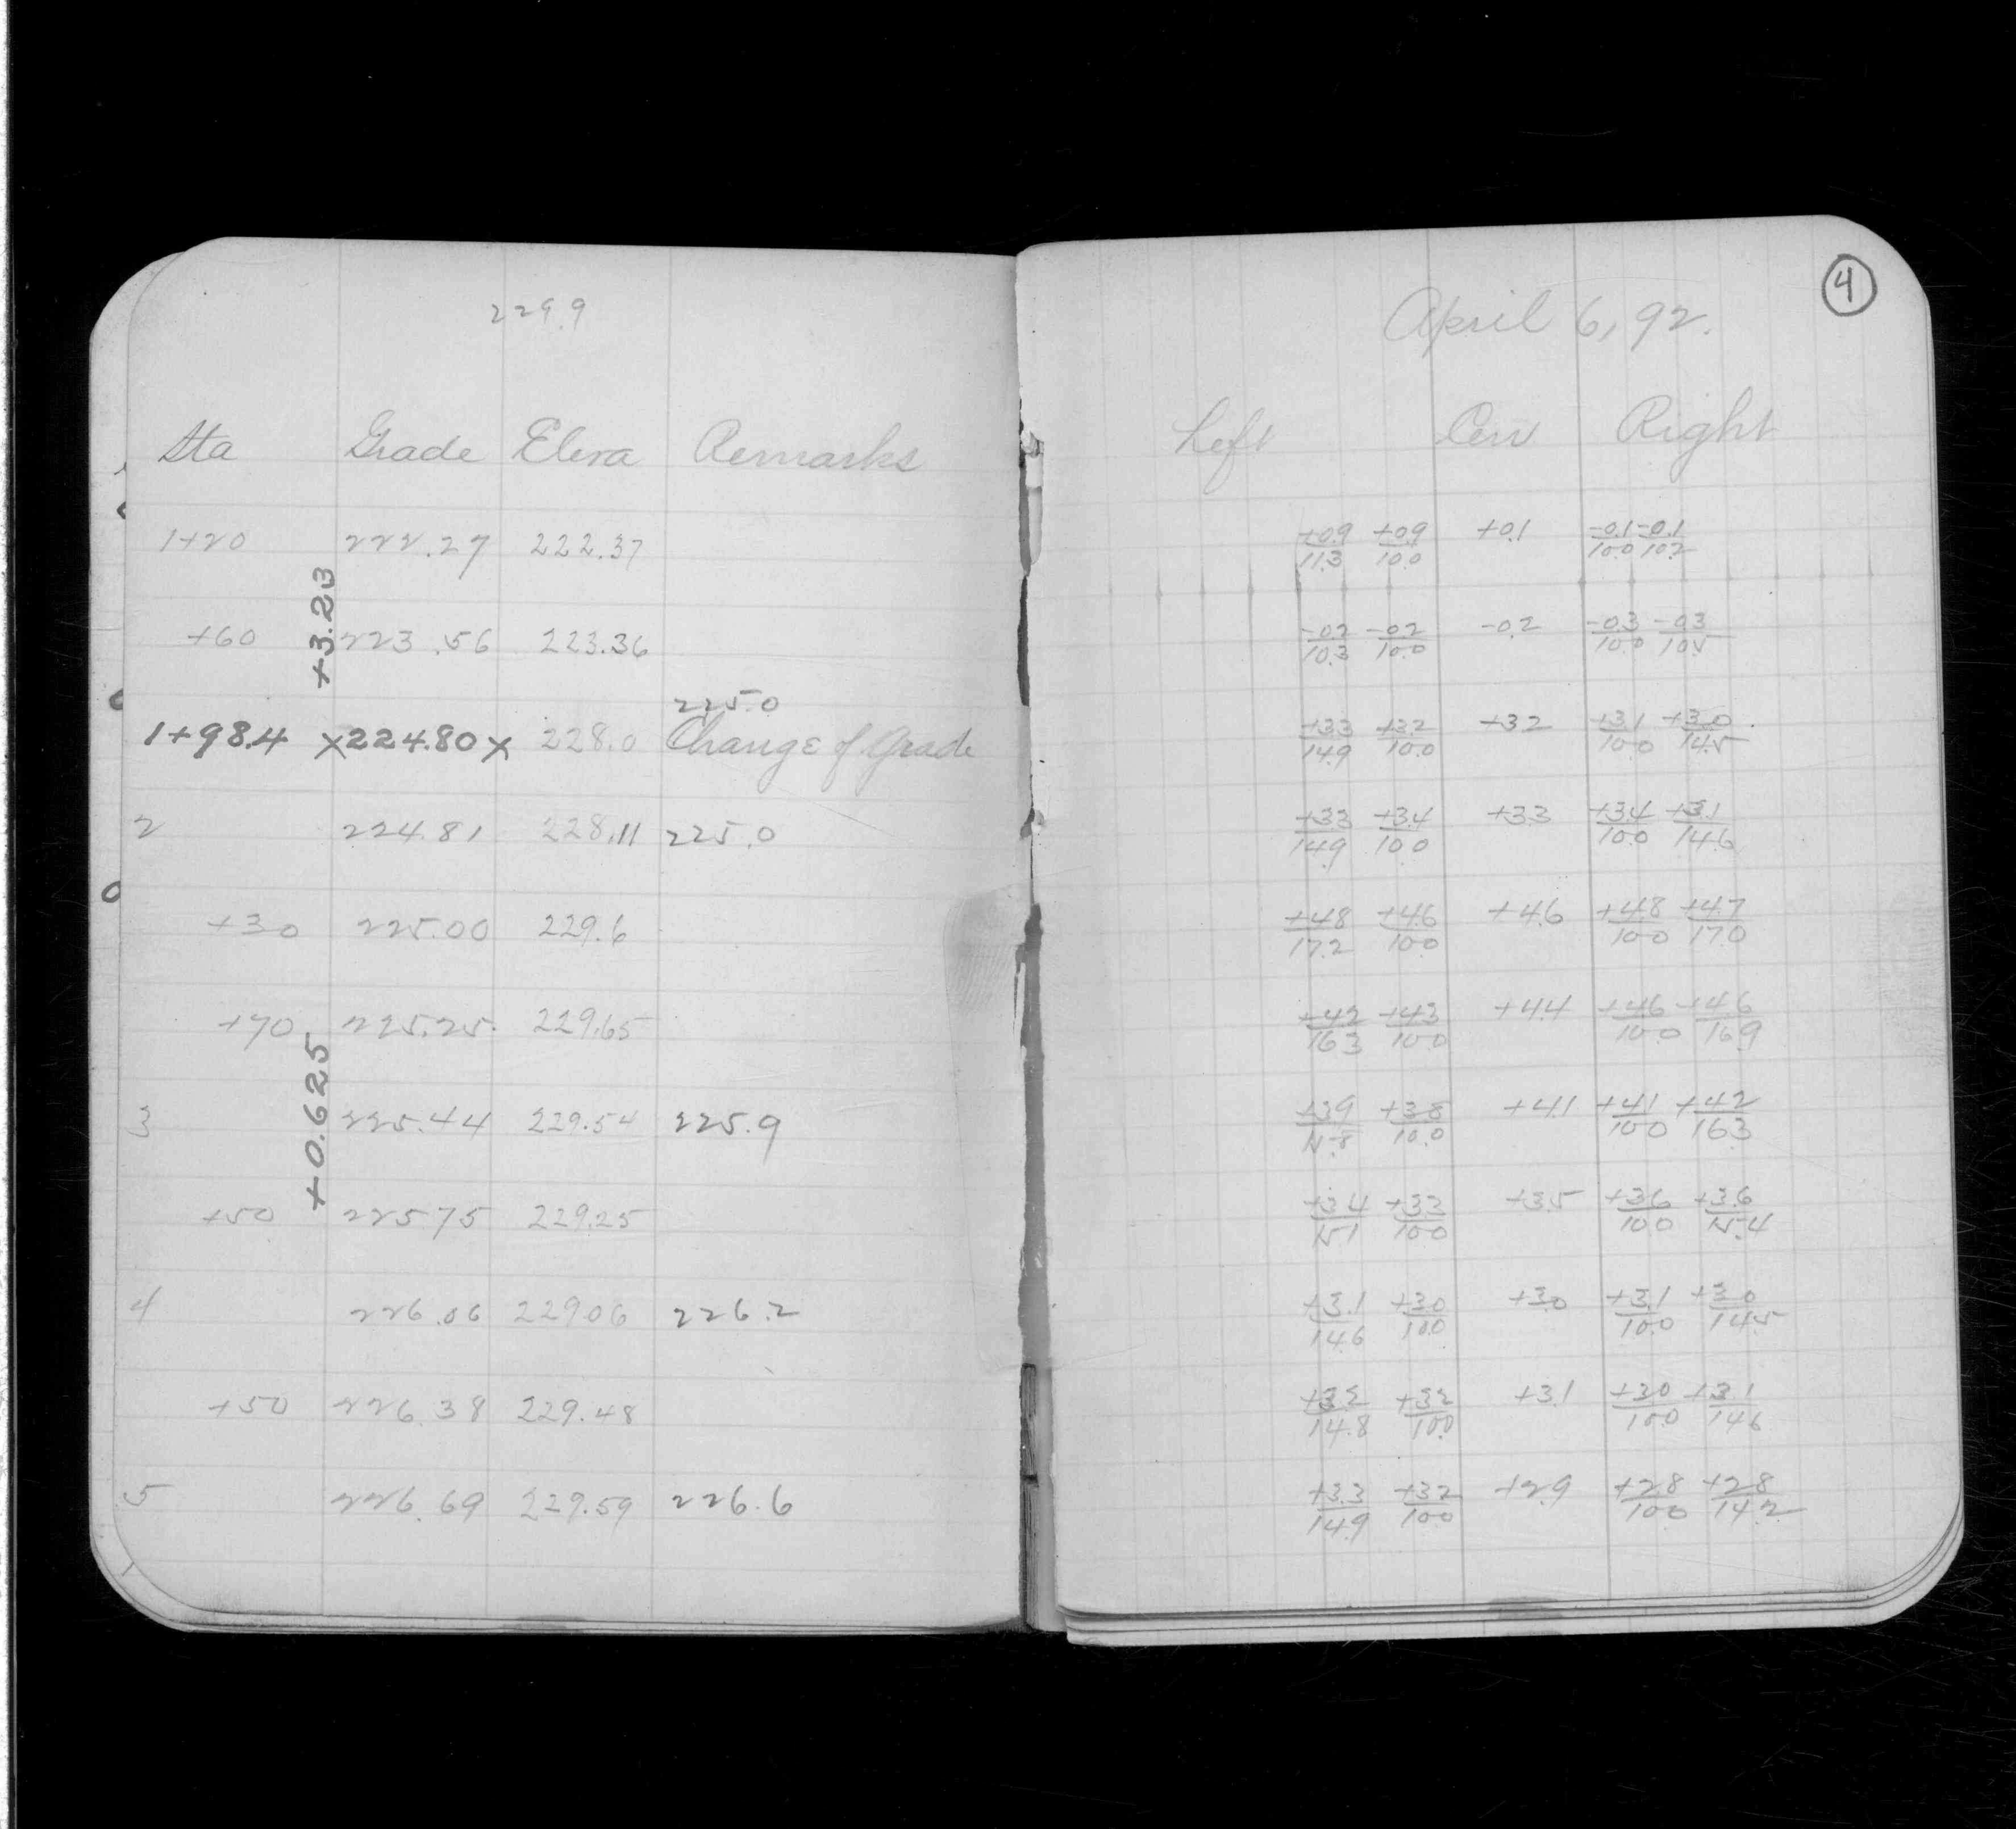 229.9
Sta Grade Eleva Remarks
1+20 222.27 222.37
+3.23
+60 223.56 223.36
225.0
1+98.4 x224.80x 228.0 Change of Grade
2 224.81 228.11 225.0
+30 225.00 229.6
+70 225.25 229.65
+0.625
3 225.44 229.54 225.9
+50 225.75 229.25
4 226.06 229.06 226.2
+50 226.38 229.48
5 226.69 229.59 226.6
4
April 6, 92.
Left Cen Right
+0.9 +0.9 +0.1 -0.1 -0.1
11.3 10.0 10.0 10.2
-0.2 -0.2 -0.2 -0.3 -0.3
10.3 10.0 10.0 10.5
+3.3 +3.2 +3.2 +3.1 +3.0
14.9 10.0 10.0 14.5
+3.3 +3.4 +3.3 +3.4 +3.1
14.9 10.0 10.0 14.6
+4.8 +4.6 +4.6 +4.8 +4.7
17.2 10.0 10.0 17.0
+4.2 +4.3 +4.4 +4.6 +4.6
16.3 10.0 10.0 16.9
+3.9 +3.8 +4.1 +4.1 +4.2
15.8 10.0 10.0 16.3
+3.4 +3.3 +3.5 +3.6 +3.6
15.1 10.0 10.0 15.4
+3.1 +3.0 +3.0 +3.1 +3.0
14.6 10.0 10.0 14.5
+3.2 +3.2 +3.1 +3.0 +3.1
14.8 10.0 10.0 14.6
+3.3 +3.2 +2.9 +2.8 +2.8
14.9 10.0 10.0 14.2